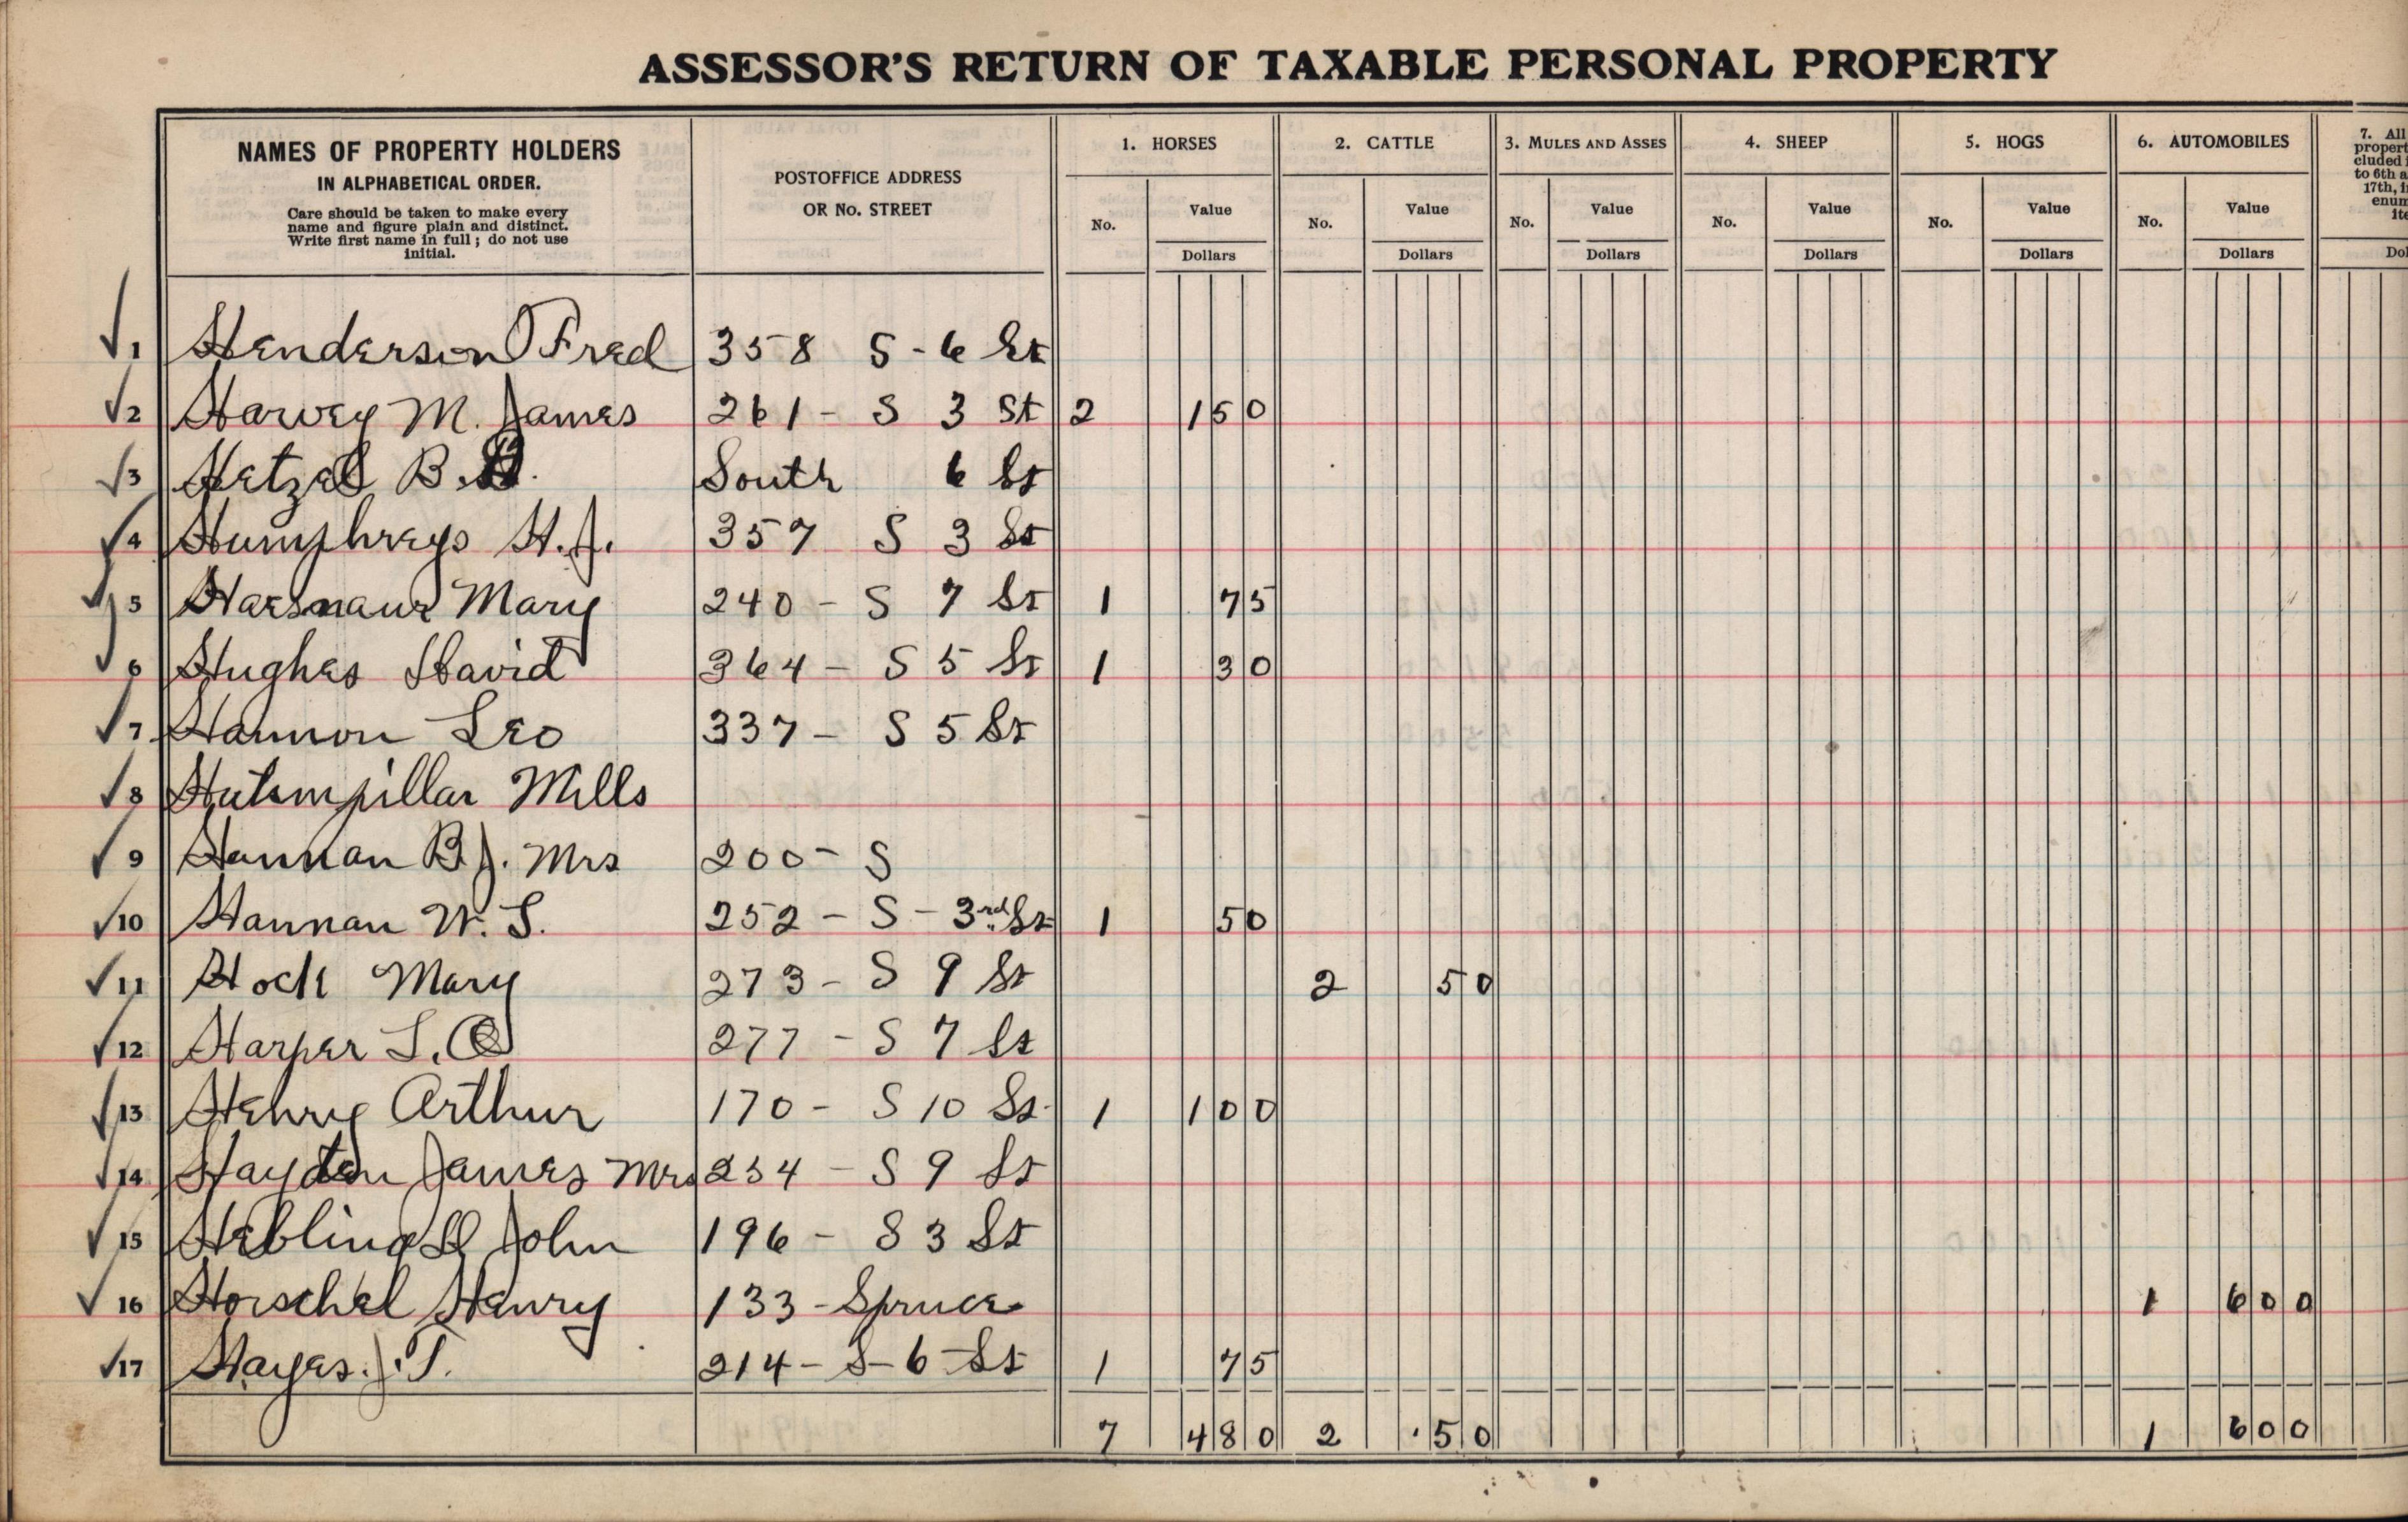 ASSESSOR'S RETURN OF TAXABLE PERSONAL PROPERTY
NAMES OF PROPERTY HOLDERS
IN ALPHABETICAL ORDER.
Care should be taken to make every
name and figure plain and distinct.
Write first name in full; do not use
initial.
POSTOFFICE ADDRESS
OR No. STREET
1. HORSES
No.
Value
Dollars
2. CATTLE
No.
Value
Dollars
3. MULES AND ASSES
No.
Value
Dollars
4. SHEEP
No.
Value
Dollars
5. HOGS
No.
Value
Dollars
6. AUTOMOBILES
No.
Value
Dollars
7. All
propert
cluded
to 6th a
17th, i
enum
ite
Dol
1 Henderson Fred 358 S-6 St
2 Harvey M. James 261- S 3 St 2 150
3 Hetzel B. South 6 St
4 Humphreys H.J. 357 S 3 St
5 Mary 240- S 7 St 1 75
6 Hughes David 364- S 5 St 1 30
7 Hannon Leo 337- S 5 St
8 Hutsmpillar Mills
9 Hannan B.J. Mrs 200- S
10 Hannan W. S. 252- S- 3rd St 1 50
11 Hock Mary 273- S 9 St 2 50
12 Harper L. C 277- S 7 St
13 Henry Arthur 170- S 10 St 1 100
14 Hayden James Mrs 234- S 9 St
15 John 196- S 3 St
16 Horschel Henry 133-Spruce 1 600
17 Hayes. J. T. 214- S-6-St 1 75
7 480 2 50 1 600